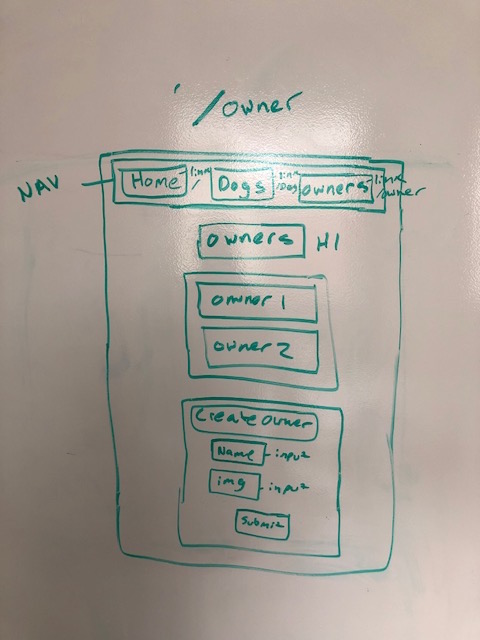 /owner
NAV Home link / Dogs link /Dog owners link /owner
owners H1
owner 1
owner 2
Create owner
Name - input
img - input
Submit